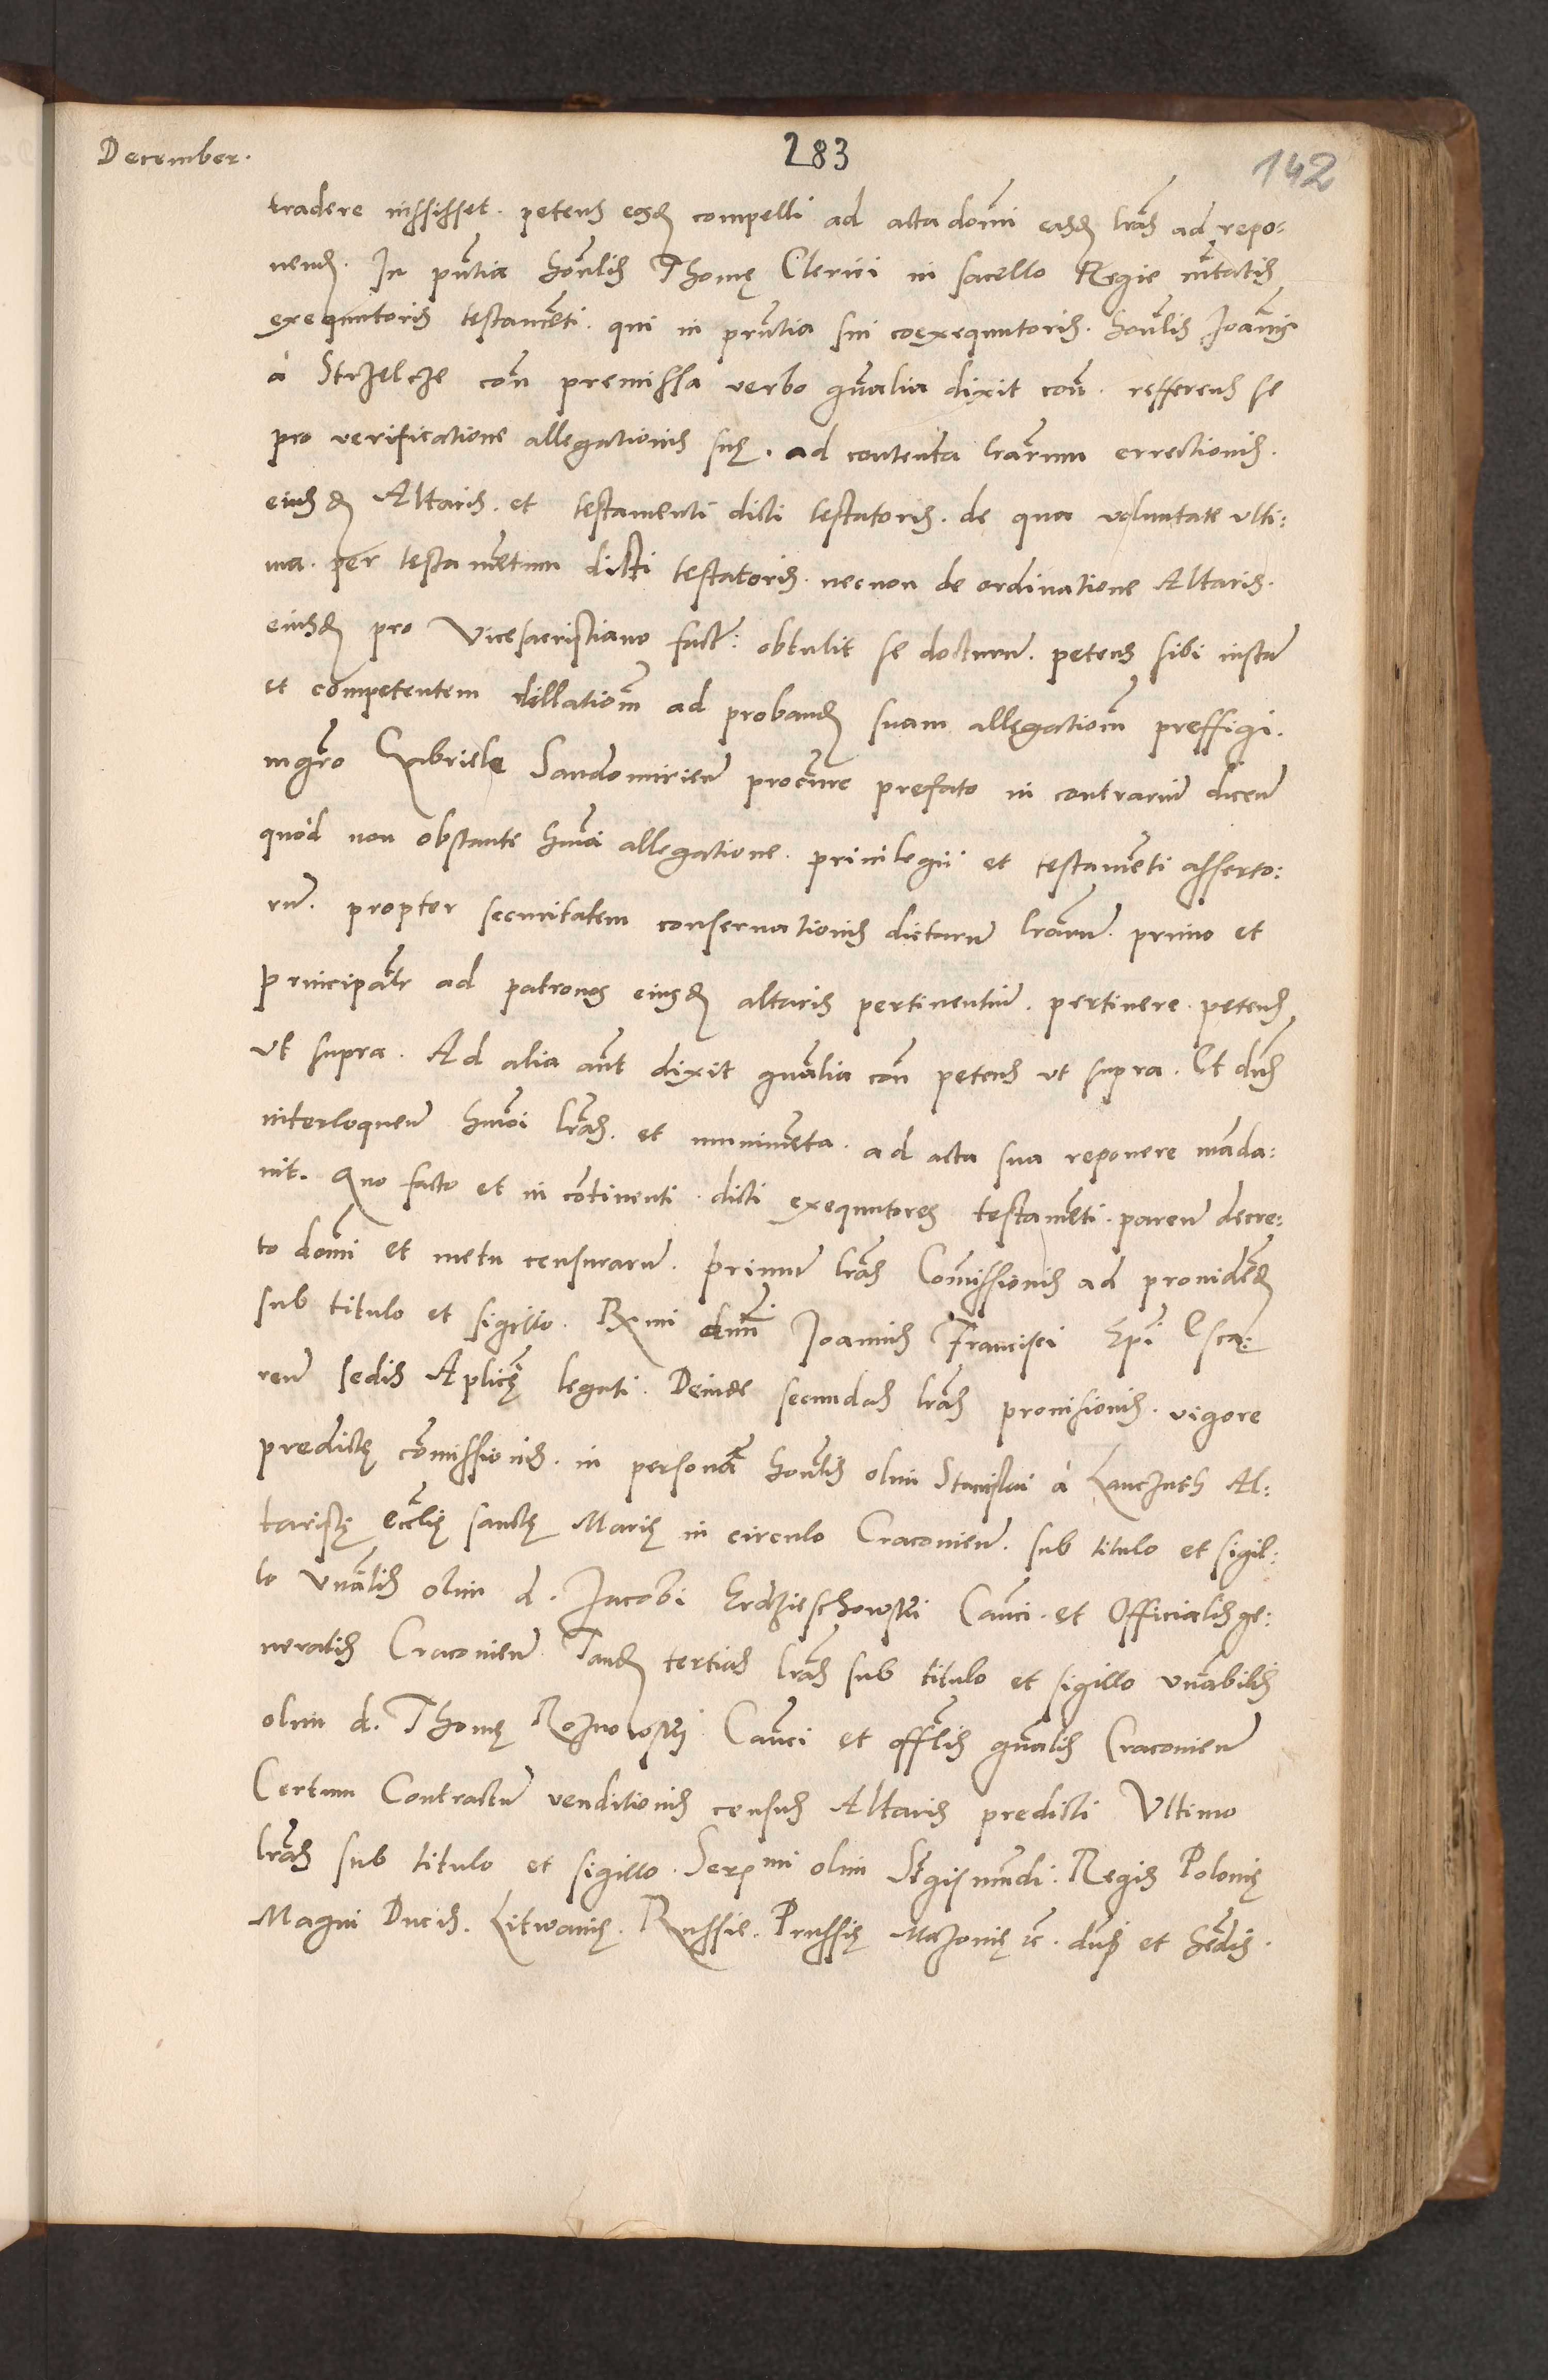 December.
283
142
tradere iussisset. petens eosd compelli ad acta domi easd lras ad repo:
nend. In pntia honlis Thomę Clerici in sacello Regie mtatis
exequutoris testamenti. qui in prntia sui coexequutoris. honlis Joannis
à Strzelcze con premissa verbo gnalia dixit con. refferens se
pro verificatione allegationis suę. ad contenta lrarum errectionis.
eiusd Altaris. et testamenti dicti testatoris. de qua voluntate ulti:
ma. per testamentum dicti testatoris. necnon de ordinatione Altaris.
eiusd pro Vicesacristiano fact: obtulit se docturu. petens sibi iustam
et competentem dillationem ad proband suam allegationem preffigi.
mgro Gabriele Sandomirien procure prefato in contrarium dicen
quod non obstante hmoi allegatione. privilegii et testamenti asserto:
ru. propter securitatem conservationis dictaru lraru. primo et
principalr ad patronos eiusd altaris pertinentium. pertinere. petens
ut supra. Ad alia aut dixit gnalia con petens ut supra. Et dns
interloquen hmoi lras. et munimenta. ad acta sua reponere manda:
vit. Quo facto et in continenti. dicti exequutores testamenti. paren decre:
to domi et metu censuraru. primum lras Commissionis ad providend
sub titulo et sigillo. Rmi dmi Joannis Francisci Epi Sca:
ren sedis Aplicę legati. Deinde secundas lras provisionis. vigore
predictę commissionis. in personam honlis olim Stanislai à Lanczuth Al:
taristę ecclię sanctę Marię in circulo Cracovien. sub titulo et sigil:
lo Vnalis olim d. Jacobi Erdzieschowski Canci. et Officialis ge:
neralis Cracovien Tand tertias lras sub titulo et sigillo vnabilis
olim d. Thomę Roznowski Canci et offlis gnalis Cracovien
Certum Contractum venditionis census Altaris predicti Ultimo
lras sub titulo et sigillo. Sermi olim Sigismundi. Regis Polonię
Magni Ducis. Litwanię. Russie. Prussię Mazovię etc. dni et hędis.